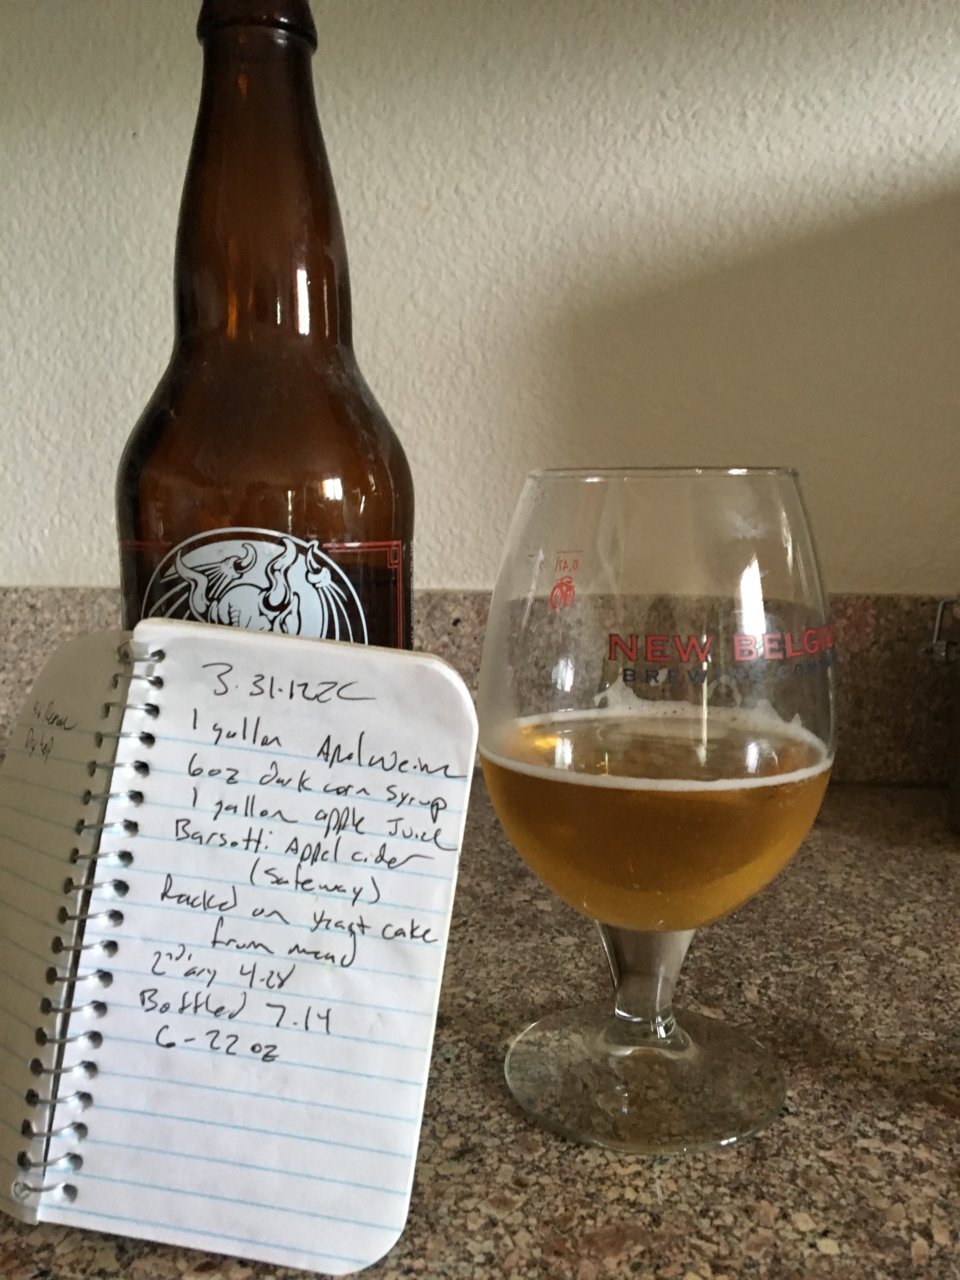 3.31.12 ZC
1 gallon Apfelweine
6oz dark corn syrup
1 gallon apple Juice
Barsotti Appel cider
(Safeway)
Racked on yeast cake
from mead
2nd'ary 4.28
Bottled 7.14
6-22 oz
NEW BELGIU
BREWING COM
0,4l